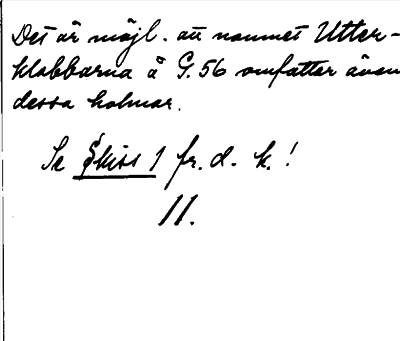 Det är möjl. att namnet Utter-
klabbarna å G. 56 omfattar även
dessa holmar.
Se Skiss 1 fr. d. k.!
11.